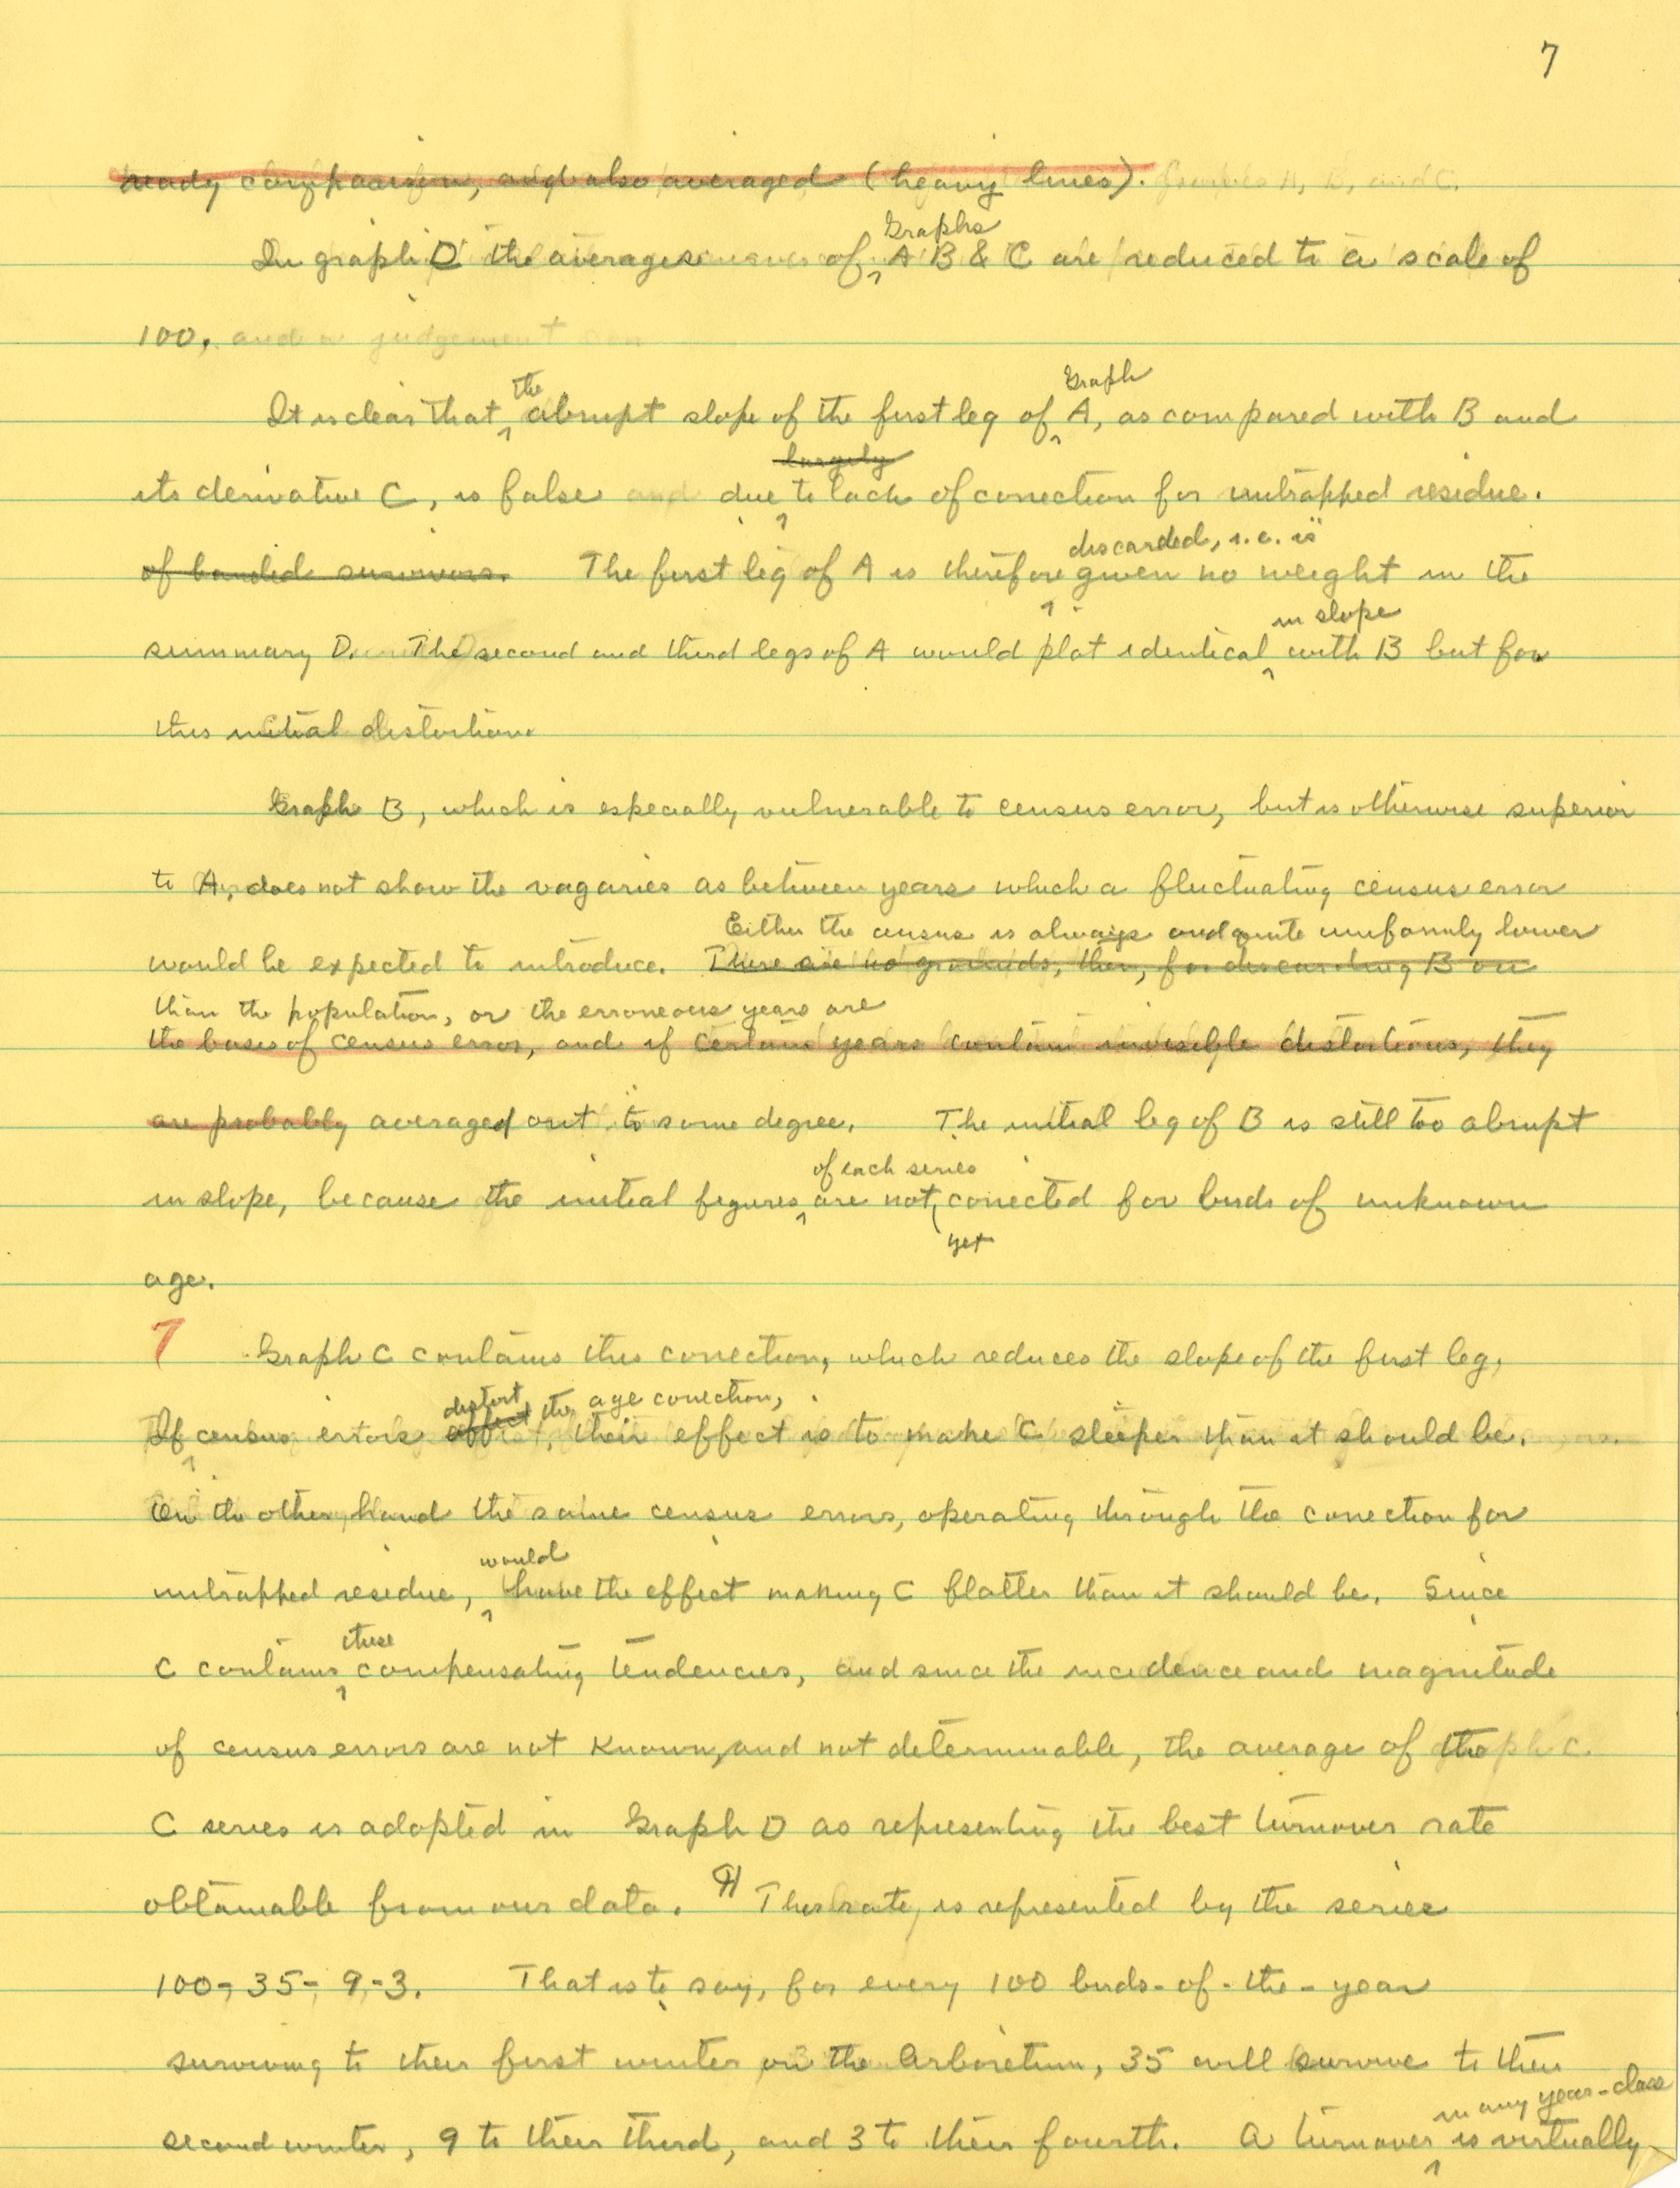 7
ready comparison, and also averaged (heavy lines).
Graphs
In graph D the averages of A B & C are reduced to a scale of
100.
the Graph
It is clear that abrupt slope of the first leg of A, as compared with B and
largely
its derivative C, is false due to lack of correction for untrapped residue.
discarded, i.e. is
of banded survivors. The first leg of A is therefore given no weight in the
in slope
summary D. The second and third legs of A would plot identical with B but for
this initial distortion.
Graph B, which is especially vulnerable to census error, but is otherwise superior
to A, does not show the vagaries as between years which a fluctuating census error
Either the census is always and quite uniformly lower
would be expected to introduce. There are no grounds, then, for discarding B on
than the population, or the erroneous years are
the basis of census error, and if certain years contain invisible distortions, they
are probably averaged out to some degree. The initial leg of B is still too abrupt
of each series
in slope, because the initial figures are not corrected for birds of unknown
yet
age.
7 Graph C contains this correction, which reduces the slope of the first leg,
distort the age correction,
If census errors affect, their effect is to make C steeper than it should be.
On the other hand the same census errors, operating through the correction for
would
untrapped residue, have the effect making C flatter than it should be. Since
these
C contains compensating tendencies, and since the incidence and magnitude
of census errors are not known, and not determinable, the average of the
C series is adopted in Graph D as representing the best turnover rate
obtainable from our data. ¶ This rate, is represented by the series
100-35-9-3. That is to say, for every 100 birds-of-the-year
surviving to their first winter on the Arboretum, 35 will survive to their
in any year-class
second winter, 9 to their third, and 3 to their fourth. A turnover is virtually